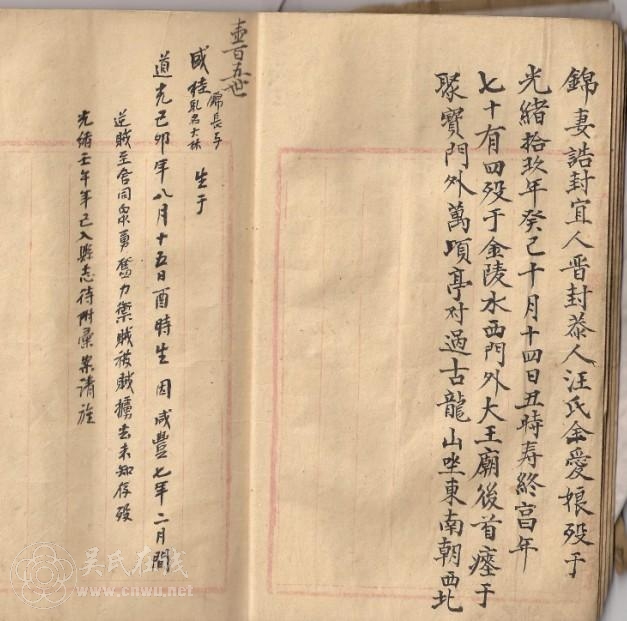 錦妻誥封宜人晋封恭人汪氏金愛娘殁于
光緒拾玖年癸巳十月十四日丑時寿終享年
七十有四殁于金陵水西門外大王廟後首瘞于
聚寳門外萬頃亭对過古龍山坐東南朝西北
壹百五世
咸桂乳名大林 席長子 生于
道光己卯年八月十五日酉時生因咸豐七年二月間
逆賊至會同衆勇奮力禦賊被賊擄去未知存殁
光緒壬午年已入縣志待附彙案请旌
吴氏在线
www.cnwu.net